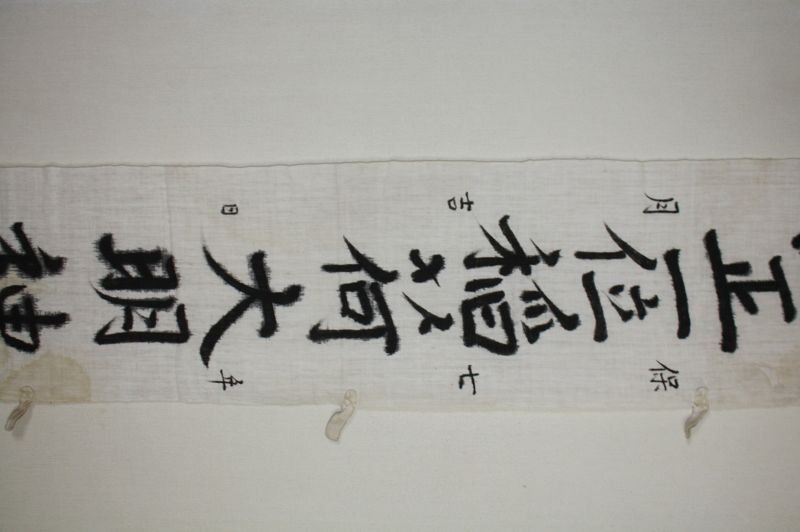 保七年
正一位稲荷大明神
月吉日